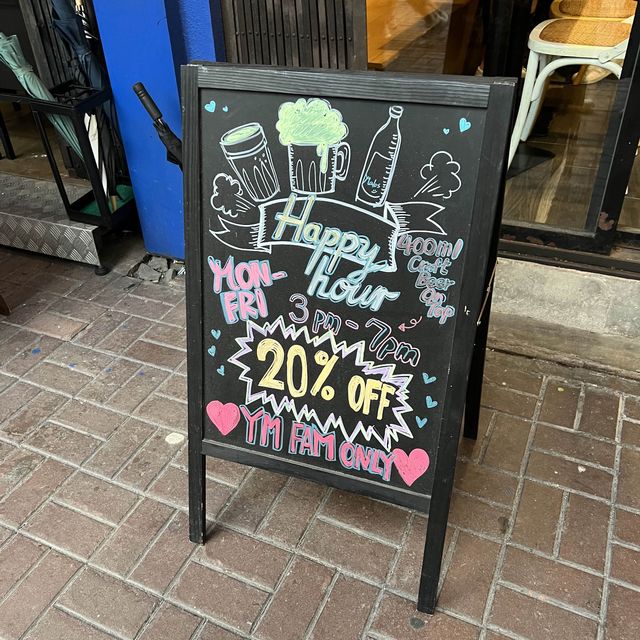 Happy
hour
400ml
Craft
Beer
On
Top
MON-
FRI
3pm - 7pm
20% OFF
YM FAM ONLY